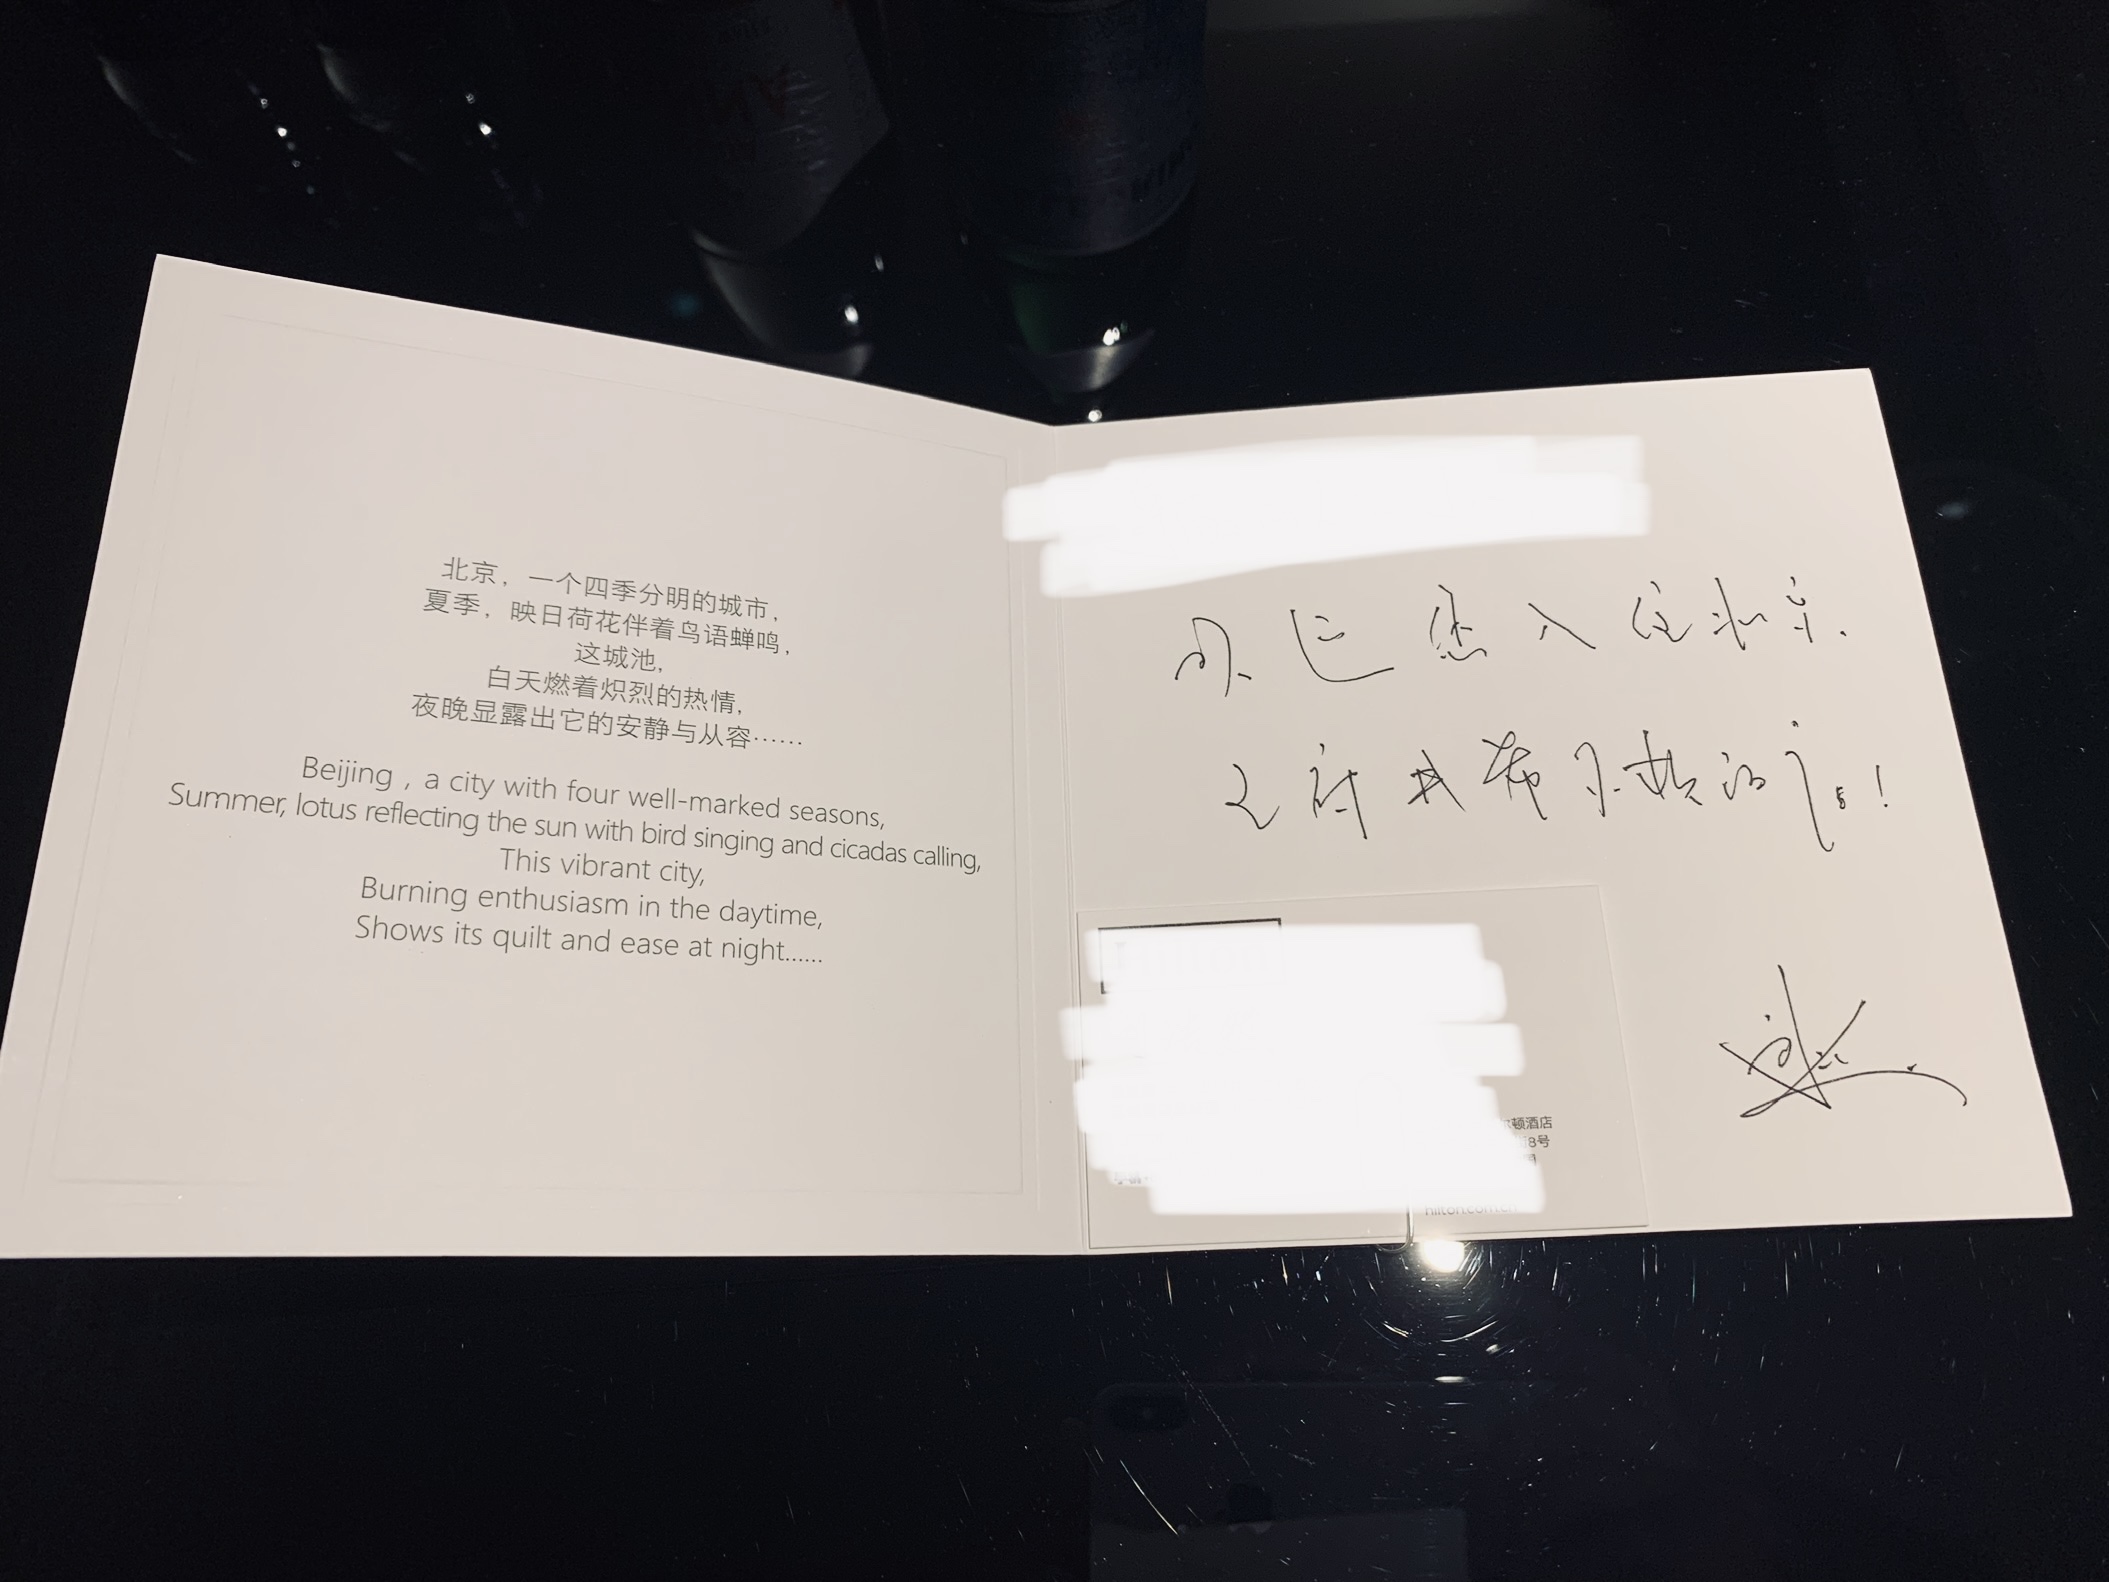 北京，一个四季分明的城市，
夏季，映日荷花伴着鸟语蝉鸣，
这城池，
白天燃着炽烈的热情，
夜晚显露出它的安静与从容……
Beijing , a city with four well-marked seasons,
Summer, lotus reflecting the sun with bird singing and cicadas calling,
This vibrant city,
Burning enthusiasm in the daytime,
Shows its quilt and ease at night......
欢迎您入住北京
王府井希尔顿酒店！
顿酒店
8号
hilton.com